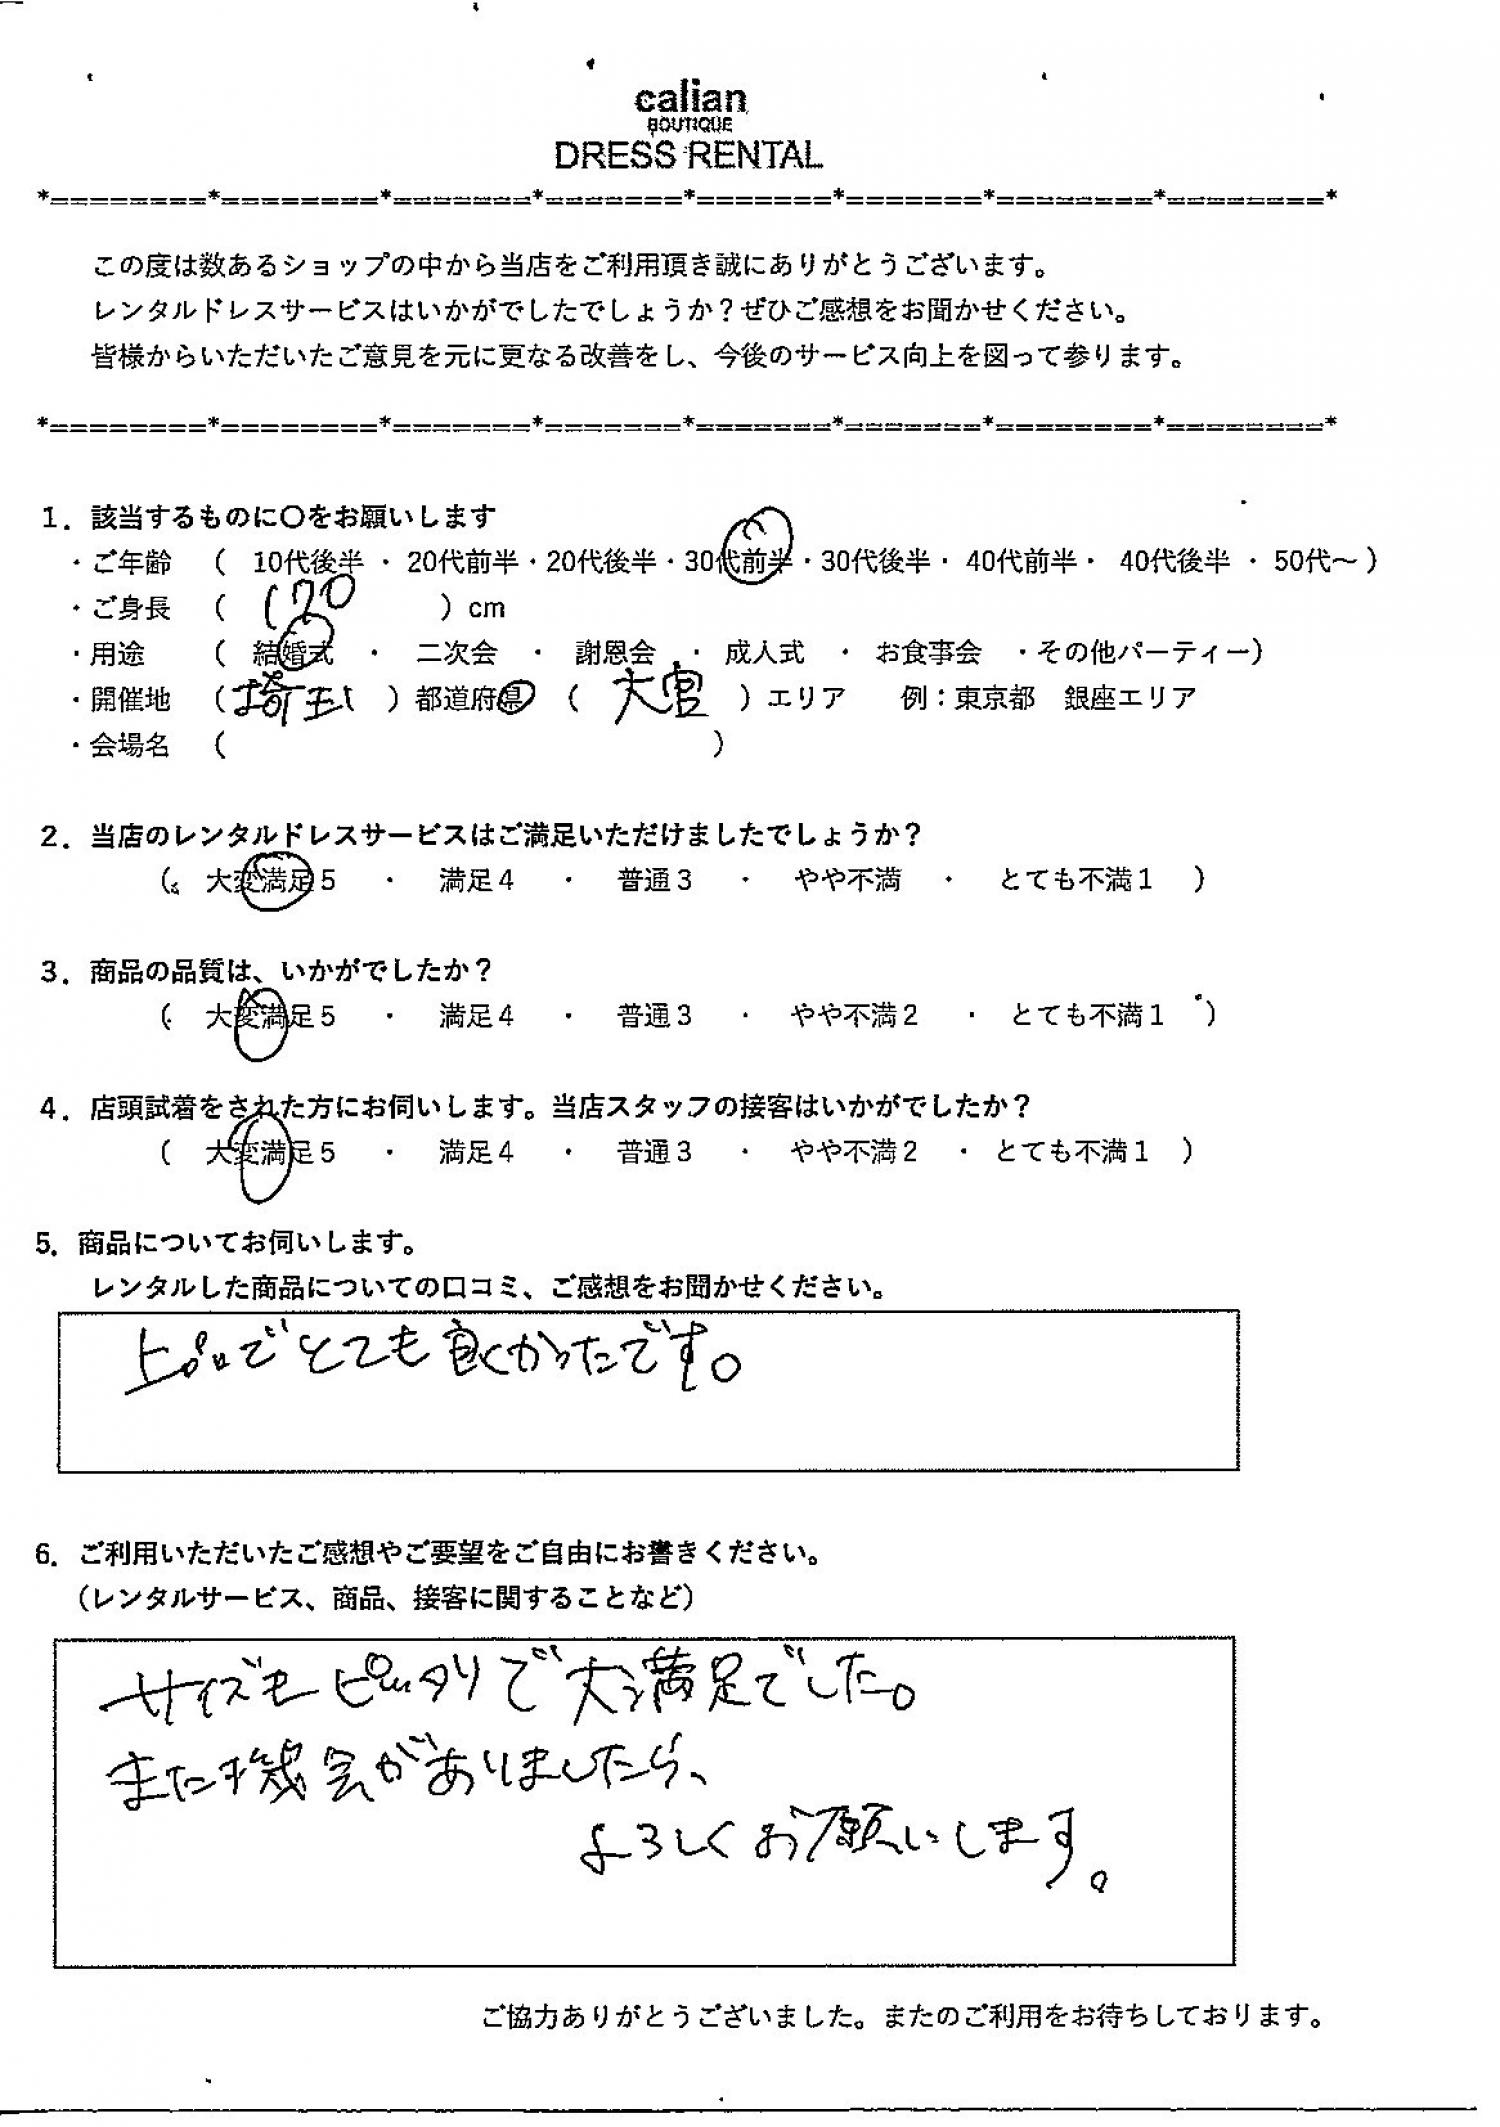 calian
BOUTIQUE
DRESS RENTAL
*========*========*=======*=======*=======*=======*========*========*
この度は数あるショップの中から当店をご利用頂き誠にありがとうございます。
レンタルドレスサービスはいかがでしたでしょうか？ぜひご感想をお聞かせください。
皆様からいただいたご意見を元に更なる改善をし、今後のサービス向上を図って参ります。
*========*========*=======*=======*=======*=======*========*========*
1．該当するものに〇をお願いします
・ご年齢 （ 10代後半 ・ 20代前半・20代後半・30代前半・30代後半・ 40代前半・ 40代後半 ・ 50代～ ）
・ご身長 （ 170 ）cm
・用途 （ 結婚式 ・ 二次会 ・ 謝恩会 ・ 成人式 ・ お食事会 ・その他パーティー）
・開催地 （ 埼玉 ）都道府県 （ 大宮 ）エリア 例：東京都 銀座エリア
・会場名 （ ）
2．当店のレンタルドレスサービスはご満足いただけましたでしょうか？
（ 大変満足５ ・ 満足４ ・ 普通３ ・ やや不満 ・ とても不満１ ）
3．商品の品質は、いかがでしたか？
（ 大変満足５ ・ 満足４ ・ 普通３ ・ やや不満２ ・ とても不満１ ）
4．店頭試着をされた方にお伺いします。当店スタッフの接客はいかがでしたか？
（ 大変満足５ ・ 満足４ ・ 普通３ ・ やや不満２ ・ とても不満１ ）
5．商品についてお伺いします。
レンタルした商品についての口コミ、ご感想をお聞かせください。
上品でとても良くかったです。
6．ご利用いただいたご感想やご要望をご自由にお書きください。
（レンタルサービス、商品、接客に関することなど）
サイズもピッタリで大満足でした。
また機会がありましたら、
よろしくお願いします。
ご協力ありがとうございました。またのご利用をお待ちしております。